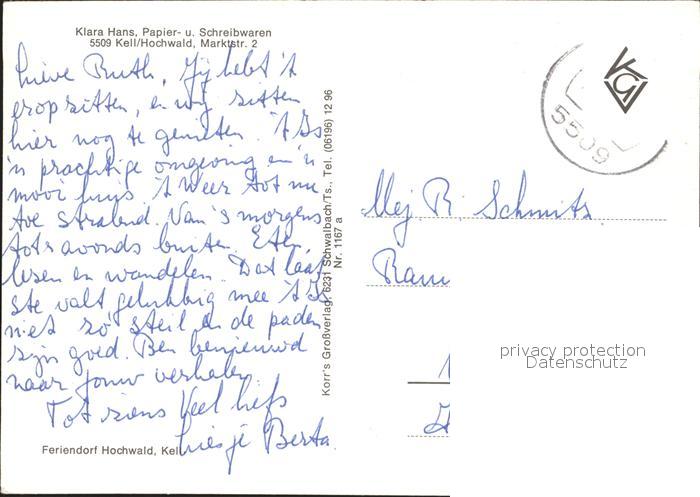 Klara Hans, Papier- u. Schreibwaren
5509 Kell/Hochwald, Marktstr. 2
Lieve Ruth, Jij hebt 't
erop zitten, en wij zitten
hier nog te genieten. 't Is
'n prachtige omgeving en 'n
mooi huis. 't Weer tot nu
toe stralend. Van 's morgens
tot 's avonds buiten. Eten,
lezen en wandelen. Dat laat
ste valt gelukkig mee 't Is
niet zo steil en de paden
zijn goed. Ben benieuwd
naar jouw verhalen
Tot ziens Veel liefs
Liesje Berta
Feriendorf Hochwald, Kel
Korr's Großverlag, 6231 Schwalbach/Ts., Tel. (06196) 12 96
Nr. 1167 a
5509
Mej R. Schmitz
privacy protection
Datenschutz